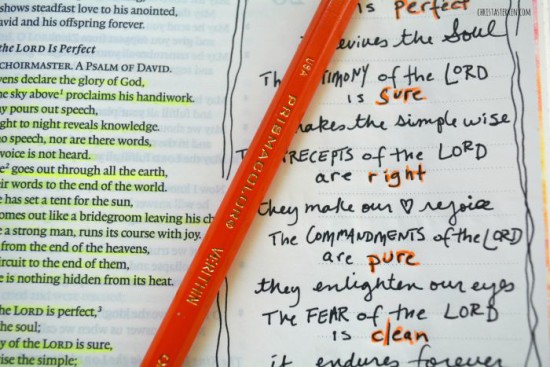 shows steadfast love to his anointed,
avid and his offspring forever.
the LORD Is Perfect
CHOIRMASTER. A PSALM OF DAVID.
vens declare the glory of God,
he sky above¹ proclaims his handiwork.
ay pours out speech,
ght to night reveals knowledge.
no speech, nor are there words,
voice is not heard.
e² goes out through all the earth,
eir words to the end of the world.
e has set a tent for the sun,
comes out like a bridegroom leaving his ch
e a strong man, runs its course with joy.
from the end of the heavens,
circuit to the end of them,
e is nothing hidden from its heat.
the LORD is perfect,³
the soul;
y of the LORD is sure,
ise the simple;
USA PRISMACOLOR VERITHIN
CHRISTASTERKEN.COM
is perfect
revives the Soul
The TIMONY of the LORD
is sure
makes the simple wise
RECEPTS of the LORD
are right
they make our ♡ rejoice
The COMMANDMENTS of the LORD
are pure
they enlighten our eyes
THE FEAR of the LORD
is clean
it endures forever